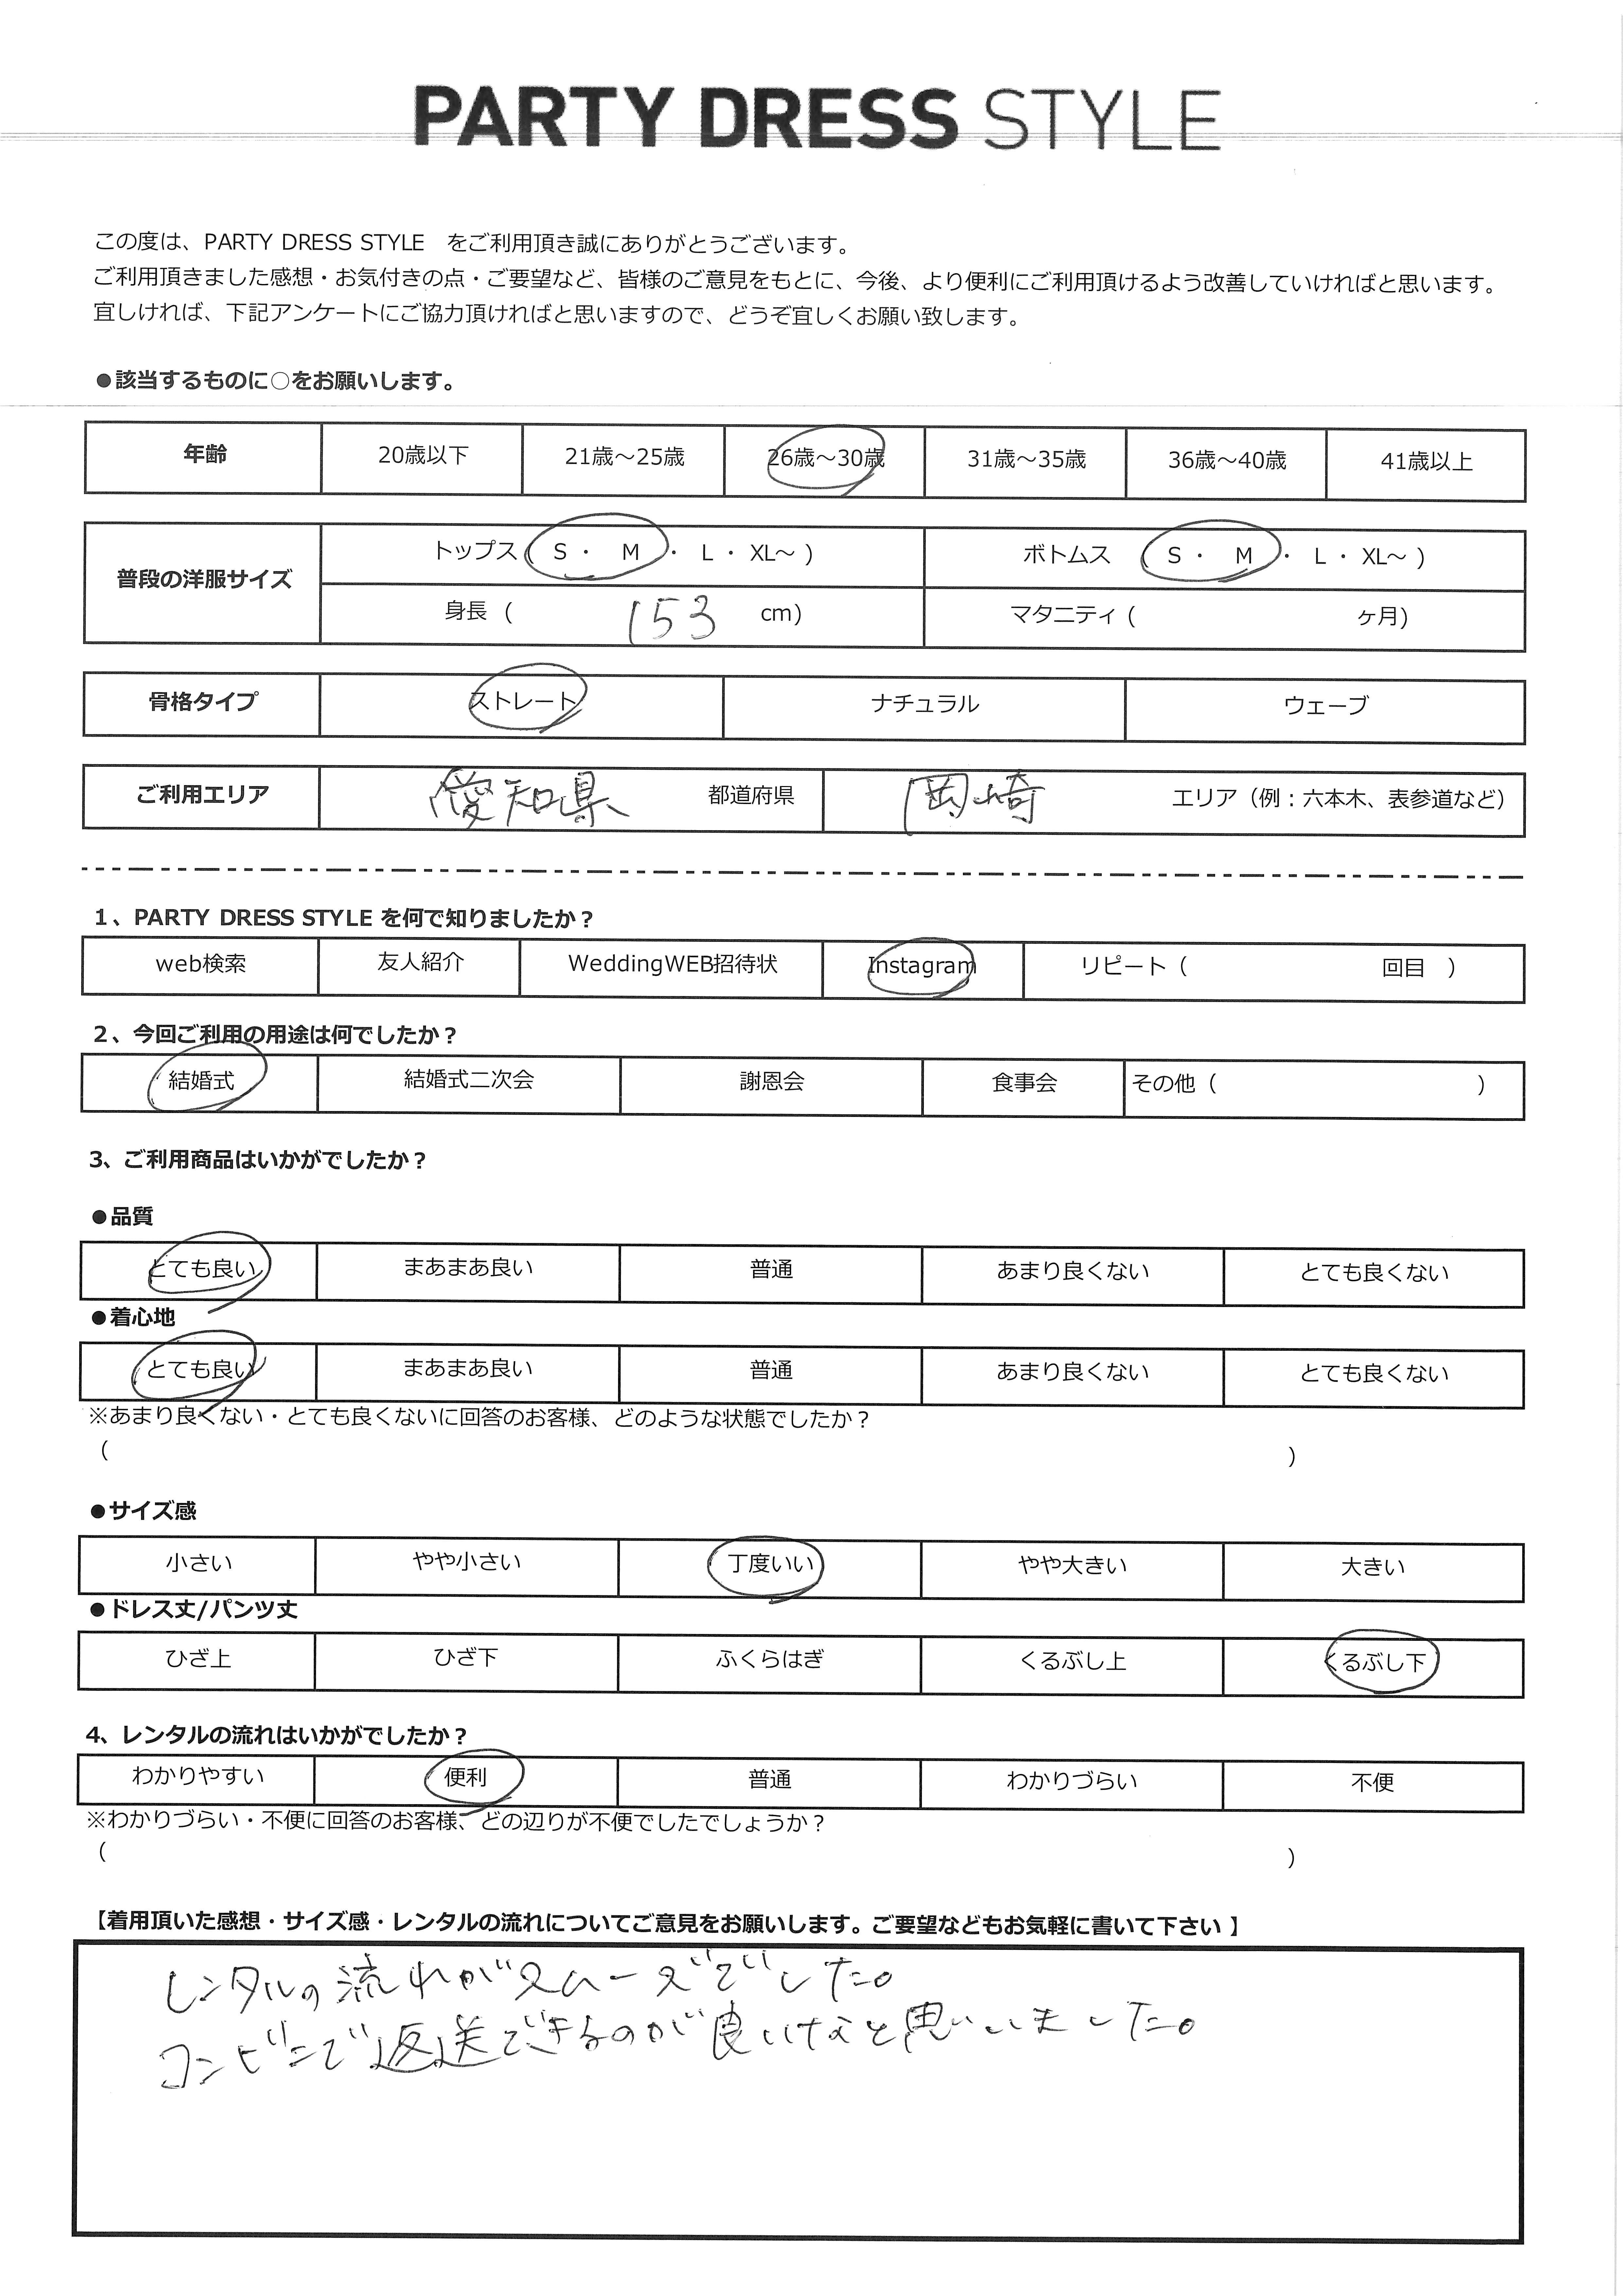 PARTY DRESS STYLE
この度は、PARTY DRESS STYLE　をご利用頂き誠にありがとうございます。
ご利用頂きました感想・お気付きの点・ご要望など、皆様のご意見をもとに、今後、より便利にご利用頂けるよう改善していければと思います。
宜しければ、下記アンケートにご協力頂ければと思いますので、どうぞ宜しくお願い致します。
●該当するものに○をお願いします。
年齢 20歳以下 21歳～25歳 26歳～30歳 31歳～35歳 36歳～40歳 41歳以上
普段の洋服サイズ トップス ( S ・ M ・ L ・ XL～ ) ボトムス ( S ・ M ・ L ・ XL～ )
身長 ( 153 cm) マタニティ ( ヶ月)
骨格タイプ ストレート ナチュラル ウェーブ
ご利用エリア 愛知県 都道府県 岡崎 エリア（例：六本木、表参道など）
1、PARTY DRESS STYLE を何で知りましたか？
web検索 友人紹介 WeddingWEB招待状 Instagram リピート（ 回目 ）
2、今回ご利用の用途は何でしたか？
結婚式 結婚式二次会 謝恩会 食事会 その他（ ）
3、ご利用商品はいかがでしたか？
●品質
とても良い まあまあ良い 普通 あまり良くない とても良くない
●着心地
とても良い まあまあ良い 普通 あまり良くない とても良くない
※あまり良くない・とても良くないに回答のお客様、どのような状態でしたか？
（ ）
●サイズ感
小さい やや小さい 丁度いい やや大きい 大きい
●ドレス丈/パンツ丈
ひざ上 ひざ下 ふくらはぎ くるぶし上 くるぶし下
4、レンタルの流れはいかがでしたか？
わかりやすい 便利 普通 わかりづらい 不便
※わかりづらい・不便に回答のお客様、どの辺りが不便でしたでしょうか？
（ ）
【着用頂いた感想・サイズ感・レンタルの流れについてご意見をお願いします。ご要望などもお気軽に書いて下さい】
レンタルの流れがスムーズでした。
コンビニで返送できるのが良いなと思いました。